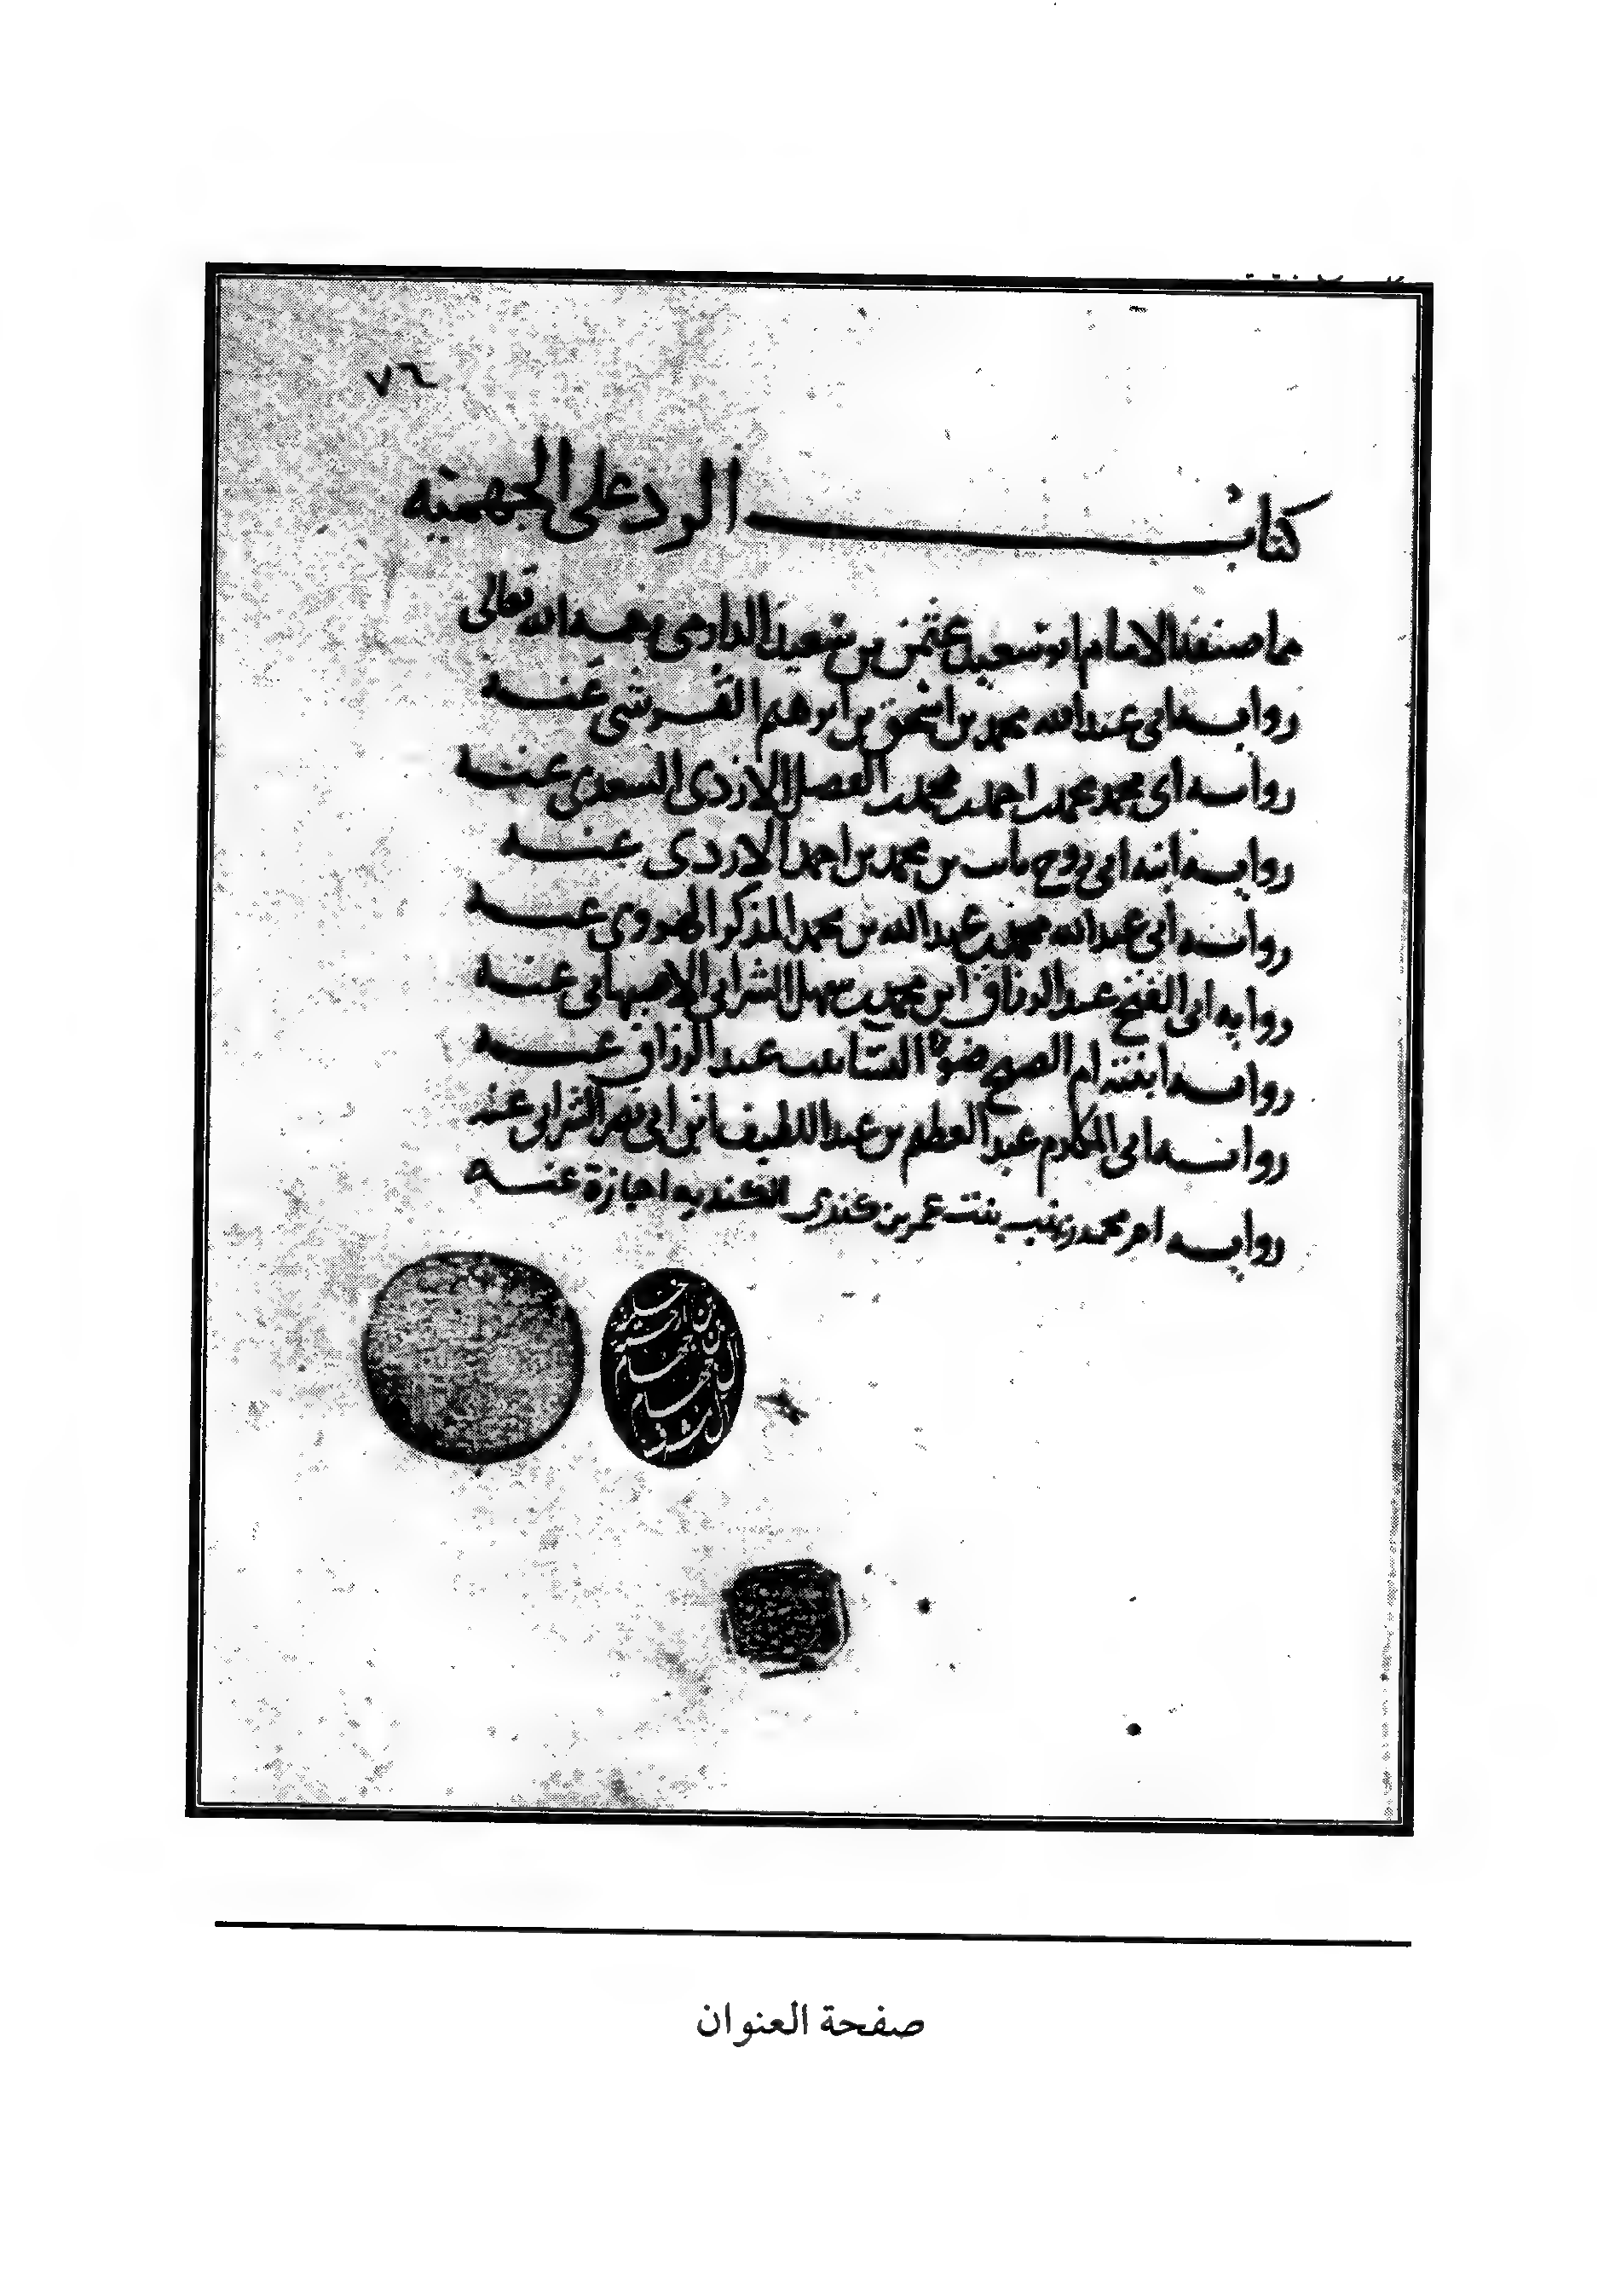 ٧٦
كتاب الرد على الجهميه
مما صنفه الامام ابو سعيد عثمن بن سعيد الدارمى رحمه الله تعالى
روايه ابى عبد الله محمد بن اسحق بن ابرهيم القرشى عنه
روايه ابى محمد محمد بن احمد بن محمد بن الفضل الازدى السعدى عنه
روايه ابنه ابى روح ثابت بن محمد بن احمد الازدى عنه
روايه ابى عبد الله محمد بن عبد الله بن محمد المذكر الهروى عنه
روايه ابى الفتح عبد الرزاق ابن محمد بن سهل الشرابى الاصبهانى عنه
روايه ابنته ام الصبح ضوء النساء بنت عبد الرزاق عنه
روايه ابى المكارم عبد العظيم بن عبد اللطيف ابن ابى نصر الشرابى عنه
روايه ام محمد زينب بنت عمر بن كندى الكنديه اجازة عنه
صفحة العنوان